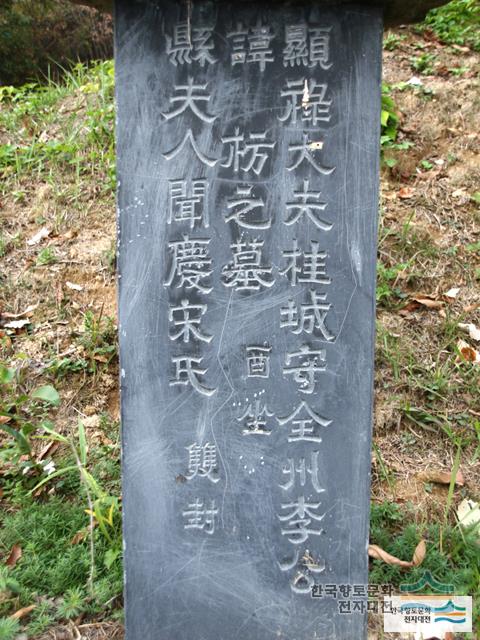 顯祿大夫桂城守全州李公
諱枋之墓 酉坐
縣夫人聞慶宋氏 雙封
한국향토문화
전자대전
한국향토문화
전자대전